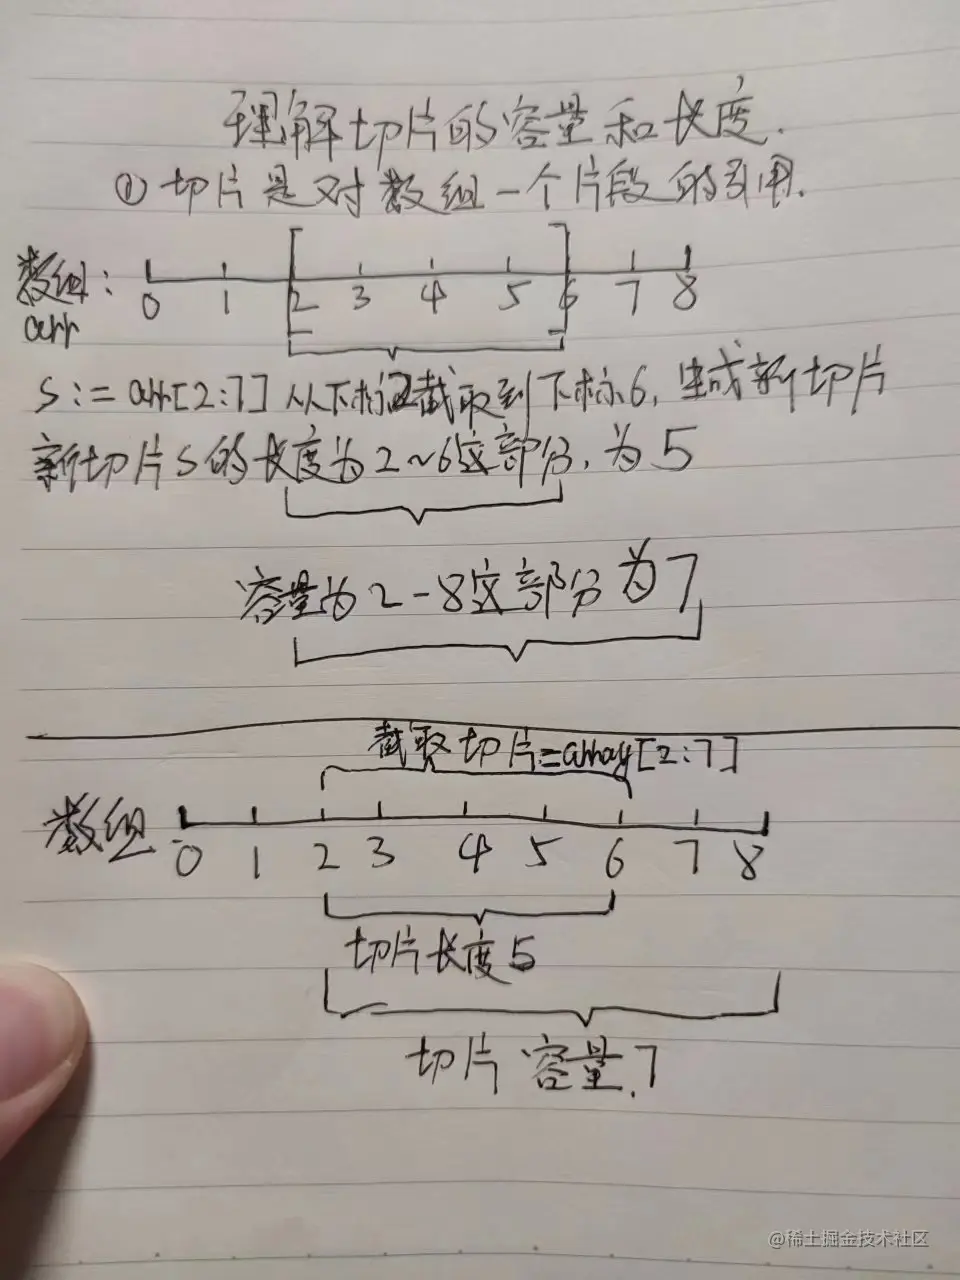 理解切片的容量和长度.
① 切片是对数组一个片段的引用.
数组:
arr
0 1 2 3 4 5 6 7 8
S := arr[2:7] 从下标2截取到下标6, 生成新切片
新切片S的长度为2~6这部分, 为5
容量为2-8这部分为7
截取切片=array[2:7]
数组
0 1 2 3 4 5 6 7 8
切片长度5
切片容量.7
@稀土掘金技术社区